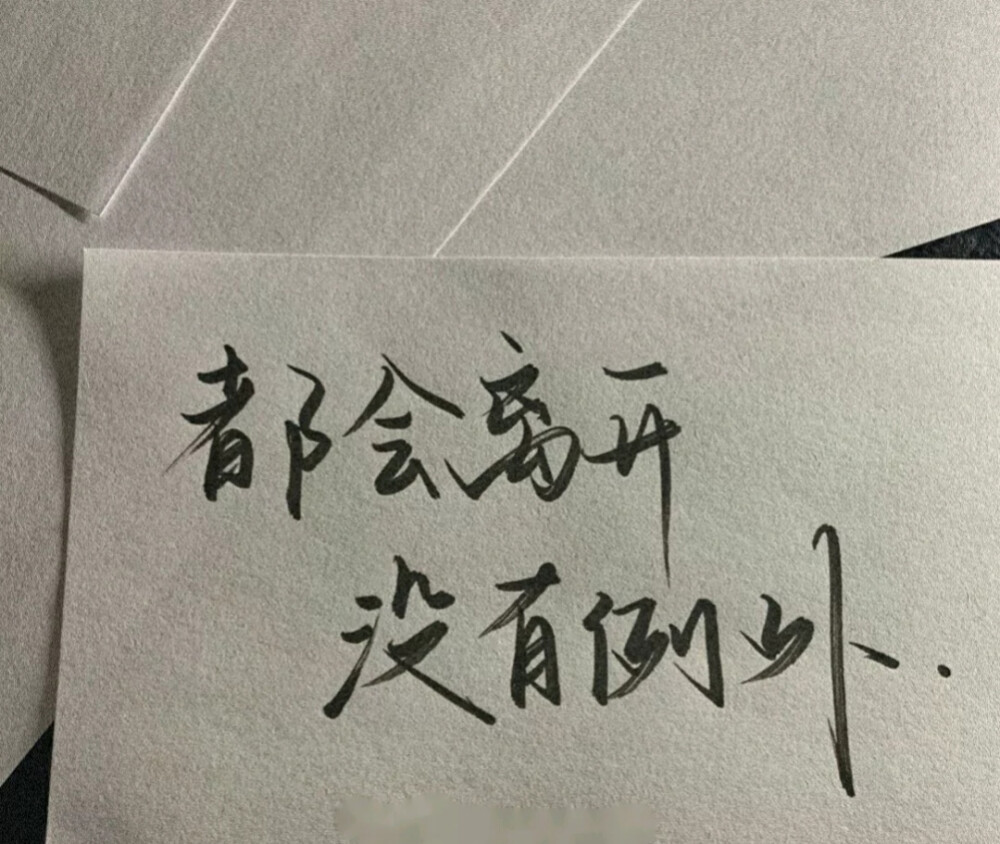 都会离开
没有例外.